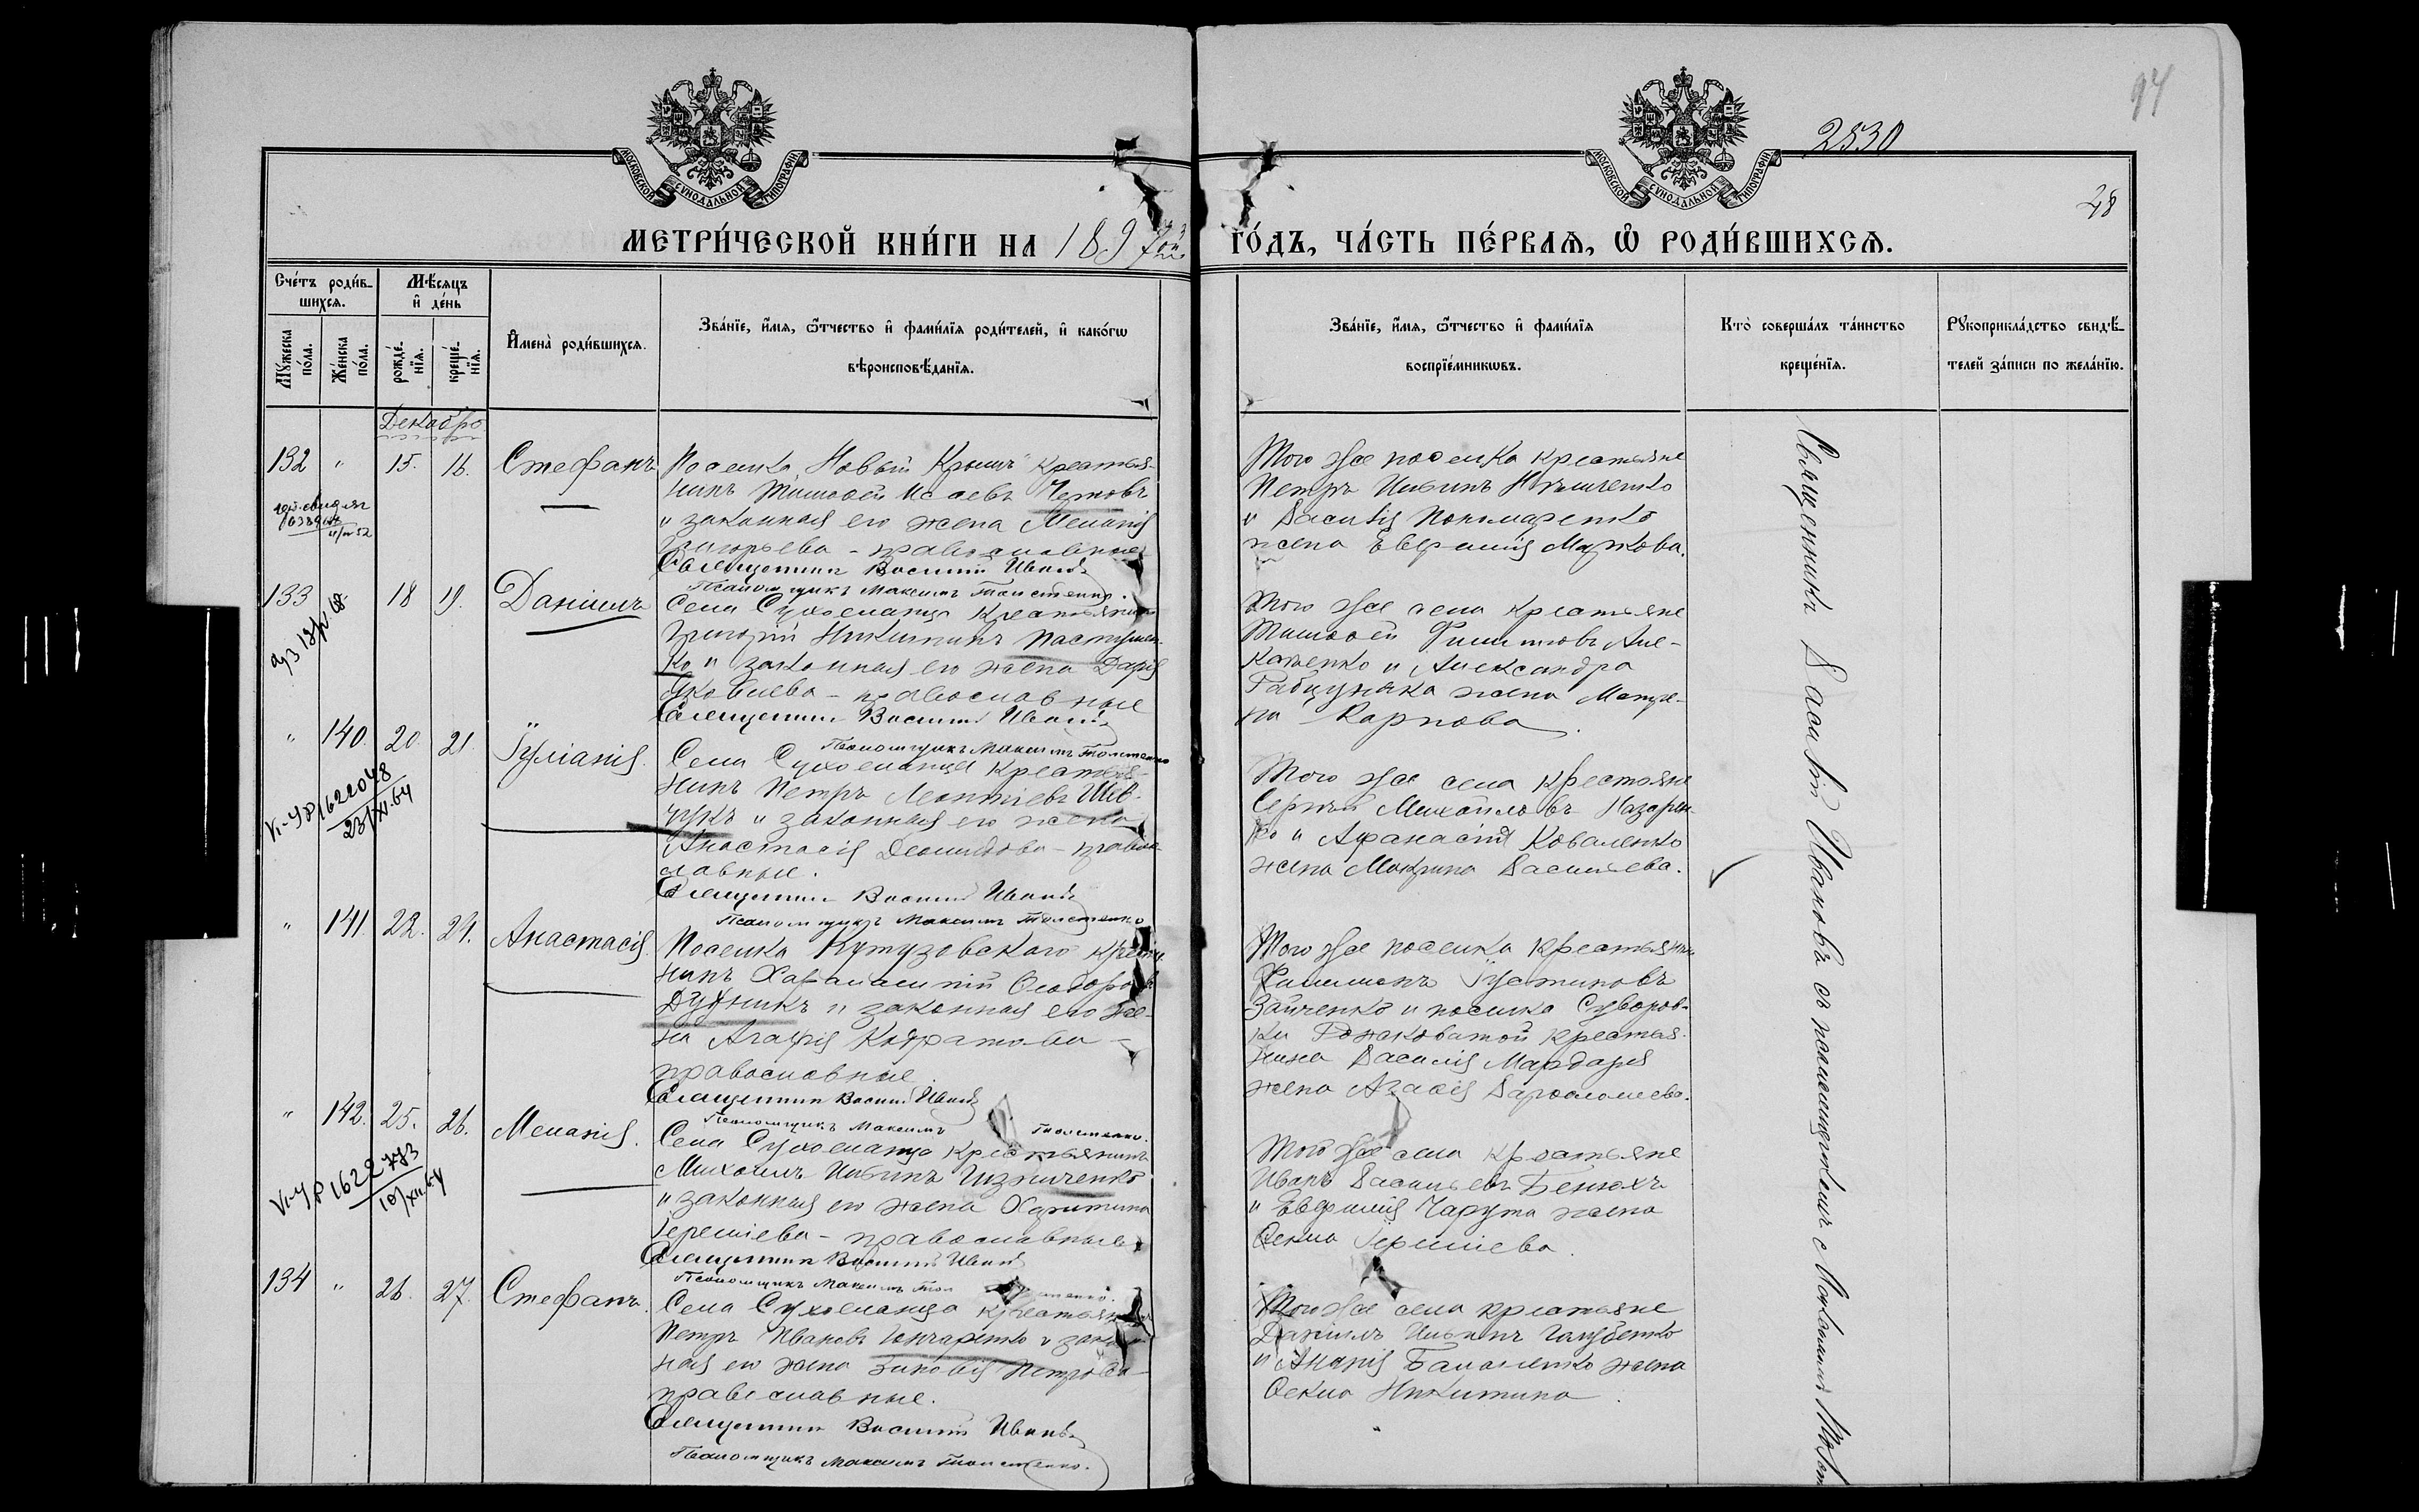 94
2530
28
МОСКОВСКОЙ СѴНОДАЛЬНОЙ ТИПОГРАФІИ
МОСКОВСКОЙ СѴНОДАЛЬНОЙ ТИПОГРАФІИ
МЕТРИ́ЧЕСКОЙ КНИ́ГИ НА 1897 ГО́ДЪ, ЧА́СТЬ ПЕ́РВАѦ, Ѡ҆ РОДИ́ВШИХСѦ.
Сче́тъ роди́вшихсѧ.
Мѣ́сѧцъ и҆ де́нь
Мꙋ́жеска по́ла.
Же́нска по́ла.
рожде́нїѧ.
креще́нїѧ.
И҆мена̀ роди́вшихсѧ.
Зва́нїе, и҆́мѧ, ѻ҆́тчество и҆ фами́лїѧ роди́телей, и҆ како́гѡ
вѣроисповѣ́данїѧ.
Зва́нїе, и҆́мѧ, ѻ҆́тчество и҆ фами́лїѧ
воспрїе́мникѡвъ.
Кто̀ соверша́лъ та́инство
креще́нїѧ.
Рꙋкоприкла́дство свидѣ́телей за́писи по жела́нїю.
Декабрь
132 " 15. 16. Стефанъ
Поселка Новый Крымъ крестья-
нинъ Тимоѳей Исаевъ Чертовъ
и законная его жена Меланія
Григорьева - православные
Священникъ Василій Ивановъ
Псаломщикъ Максимъ Толстенко.
Того же поселка крестьяне
Петръ
и Василія Пономаренко
жена Евфимія Маркова.
133 18 19. Даніилъ
Села Сухоеланца крестьянинъ
Григорій Никитинъ Пастушен-
ко и законная его жена Дарія
Яковлева - православные
Священникъ Василій Ивановъ
Псаломщикъ Максимъ Толстенко
Того же села крестьяне
Тимоѳей Филиповъ
и Александра
жена Матре-
на Карпова.
" 140. 20. 21. Іуліанія.
Села Сухоеланца крестья-
нинъ Петръ Леонтіевъ Шев-
чукъ и законная его жена
Анастасія Демидова - право-
славные.
Священникъ Василій Ивановъ
Псаломщикъ Максимъ Толстенко
Того же села крестьяне
Сергѣй Михайловъ Назарен-
ко и Афанасія Коваленко
жена Макрина Васильева.
VI-УР 1622048
23/XII.64
" 141. 22. 24. Анастасія.
Поселка Кутузовского крестья-
нинъ Харалампій Ѳеодоровъ
Дудникъ и законная его же-
на Агафія Кодратова -
православные.
Священникъ Василій Ивановъ
Псаломщикъ Максимъ Толстенко.
Того же поселка крестьянинъ
Филимонъ Іустиновъ
Зайченко и поселка Суворов-
ки крестья-
нина Василія Мардаря
жена Агаѳія Варѳоломеева.
" 142. 25. 26. Меланія.
Села Сухоеланца крестьянинъ
Михаилъ
и законная его жена Харитина
Іереміева - православные
Священникъ Василій Ивановъ
Псаломщикъ Максимъ Толстенко.
Того же села крестьяне
Иванъ Васильевъ Бенюхъ
и Евфимія Чарута жена
Ѳекла Іереміева.
VI-УР 1622773
10/XII.64
134 " 26. 27. Стефанъ.
Села Сухоеланца крестьянинъ
Петръ Ивановъ Гончаренко и закон-
ная его жена Зиновія Петрова
православные.
Священникъ Василій Ивановъ
Псаломщикъ Максимъ Толстенко.
Того же села крестьяне
Даніилъ Ильинъ Голубенко
и Ананія жена
Ѳекла Никитина.
Священникъ Василій Ивановъ съ псаломщикомъ